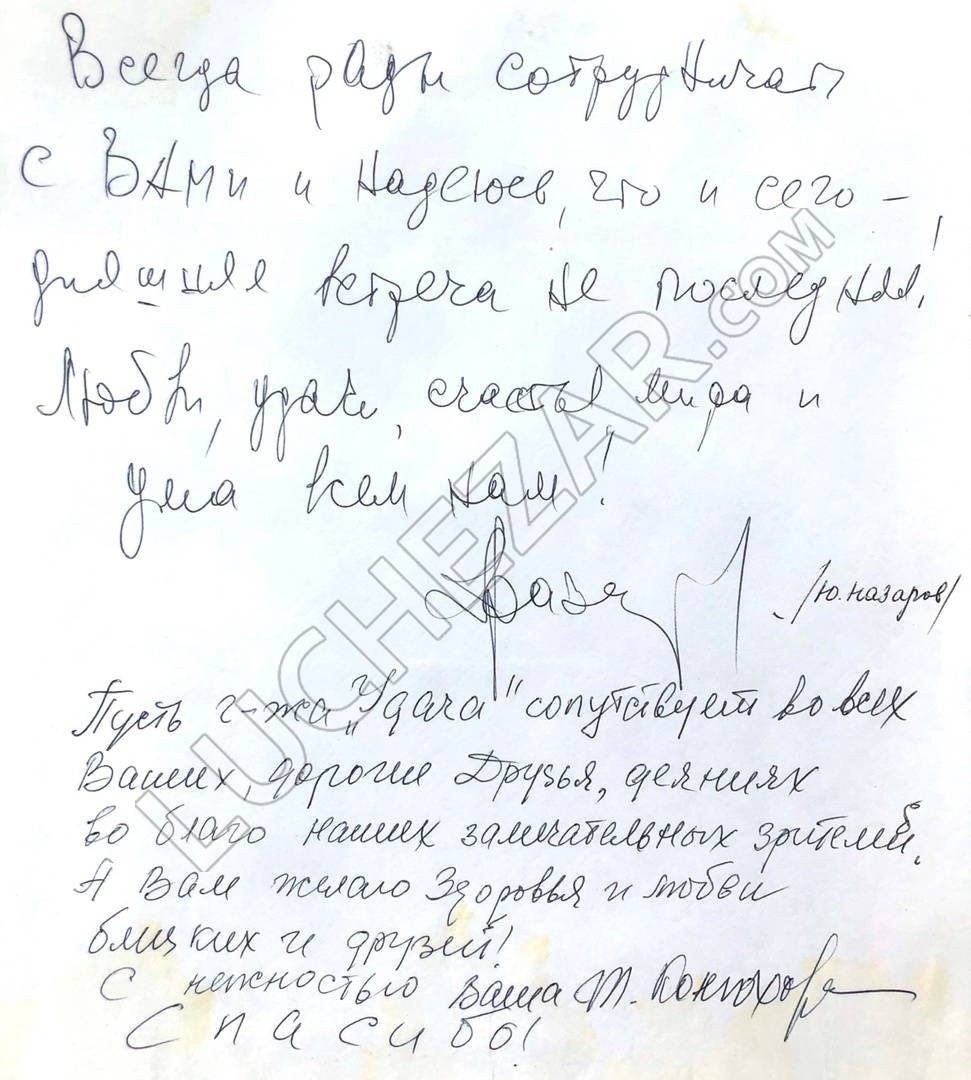 Всегда рады сотрудничать
с Вами и надеюсь, что и сего-
дняшняя встреча не последняя!
Любви, удачи, счастья мира и
ума всем нам!
/Ю. Назаров/
Пусть г-жа „Удача" сопутствует во всех
Ваших, дорогие Друзья, деяниях
во благо наших замечательных зрителей.
А Вам желаю Здоровья и любви
близких и друзей!
С нежностью Ваша Т. Конюхова
Спасибо!
LUCHEZAR.COM